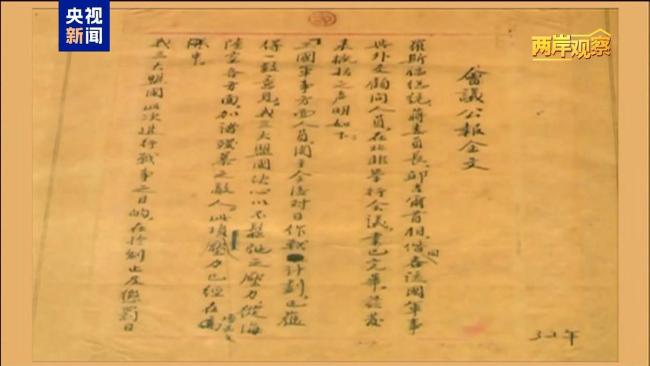 央视新闻
两岸观察
會議公報全文
羅斯福總統、蔣委員長、邱吉爾首相、偕同各該國軍事
與外交顧問人員,在北非舉行會議,業已完畢,茲發
表概括之聲明如下:
三國軍事方面人員,關于今後對日作戰計劃,已獲
得一致意見,我三大盟國決心以不鬆弛之壓力,從海
陸空各方面,加諸殘暴之敵人,此項壓力已經在
我三大盟國此次進行戰爭之目的,在於制止及懲罰日
32年